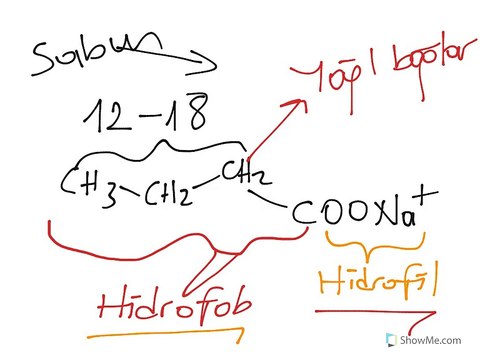 Sabun
Yağı bağlar
12-18
CH3-CH2-CH2
COONa+
Hidrofob
Hidrofil
ShowMe.com